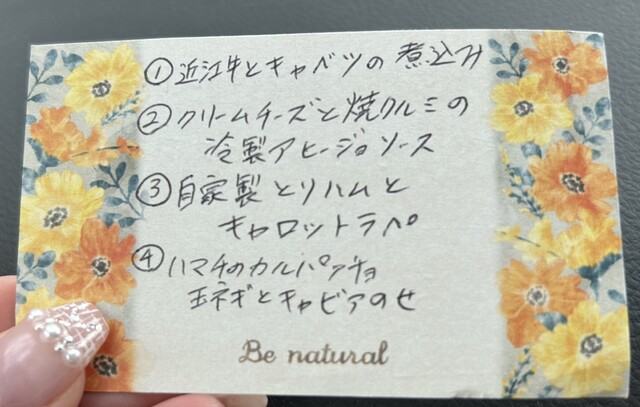 ①近江牛とキャベツの煮込み
②クリームチーズと焼クルミの
冷製アヒージョソース
③自家製とりハムと
キャロットラペ
④ハマチのカルパッチョ
玉ネギとキャビアのせ
Be natural